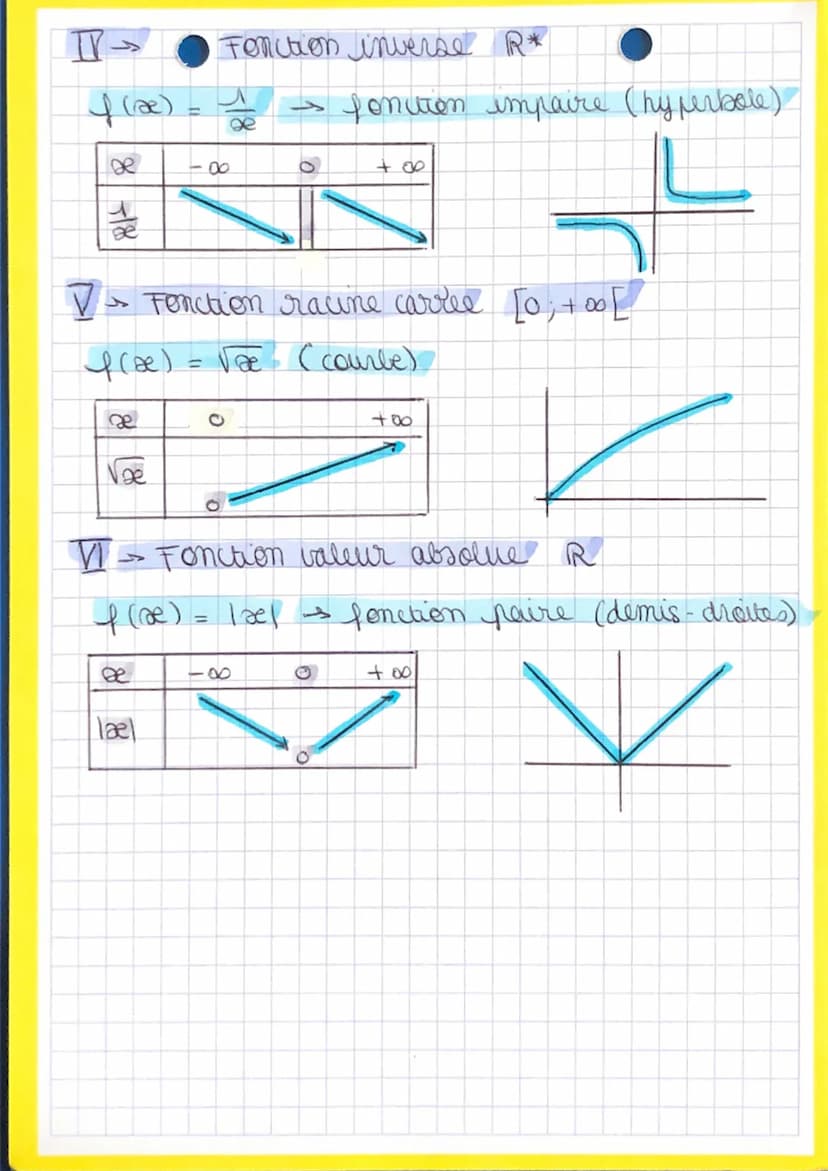 IV → Fonction inverse ℝ*
f(x) = 1/x → fonction impaire (hyperbole)
x -∞ 0 +∞
1/x
V → Fonction racine carrée [0 ; +∞[
f(x) = √x (courbe)
x 0 +∞
√x
0
VI → Fonction valeur absolue ℝ
f(x) = |x| → fonction paire (demis-droites)
x -∞ 0 +∞
|x|
0